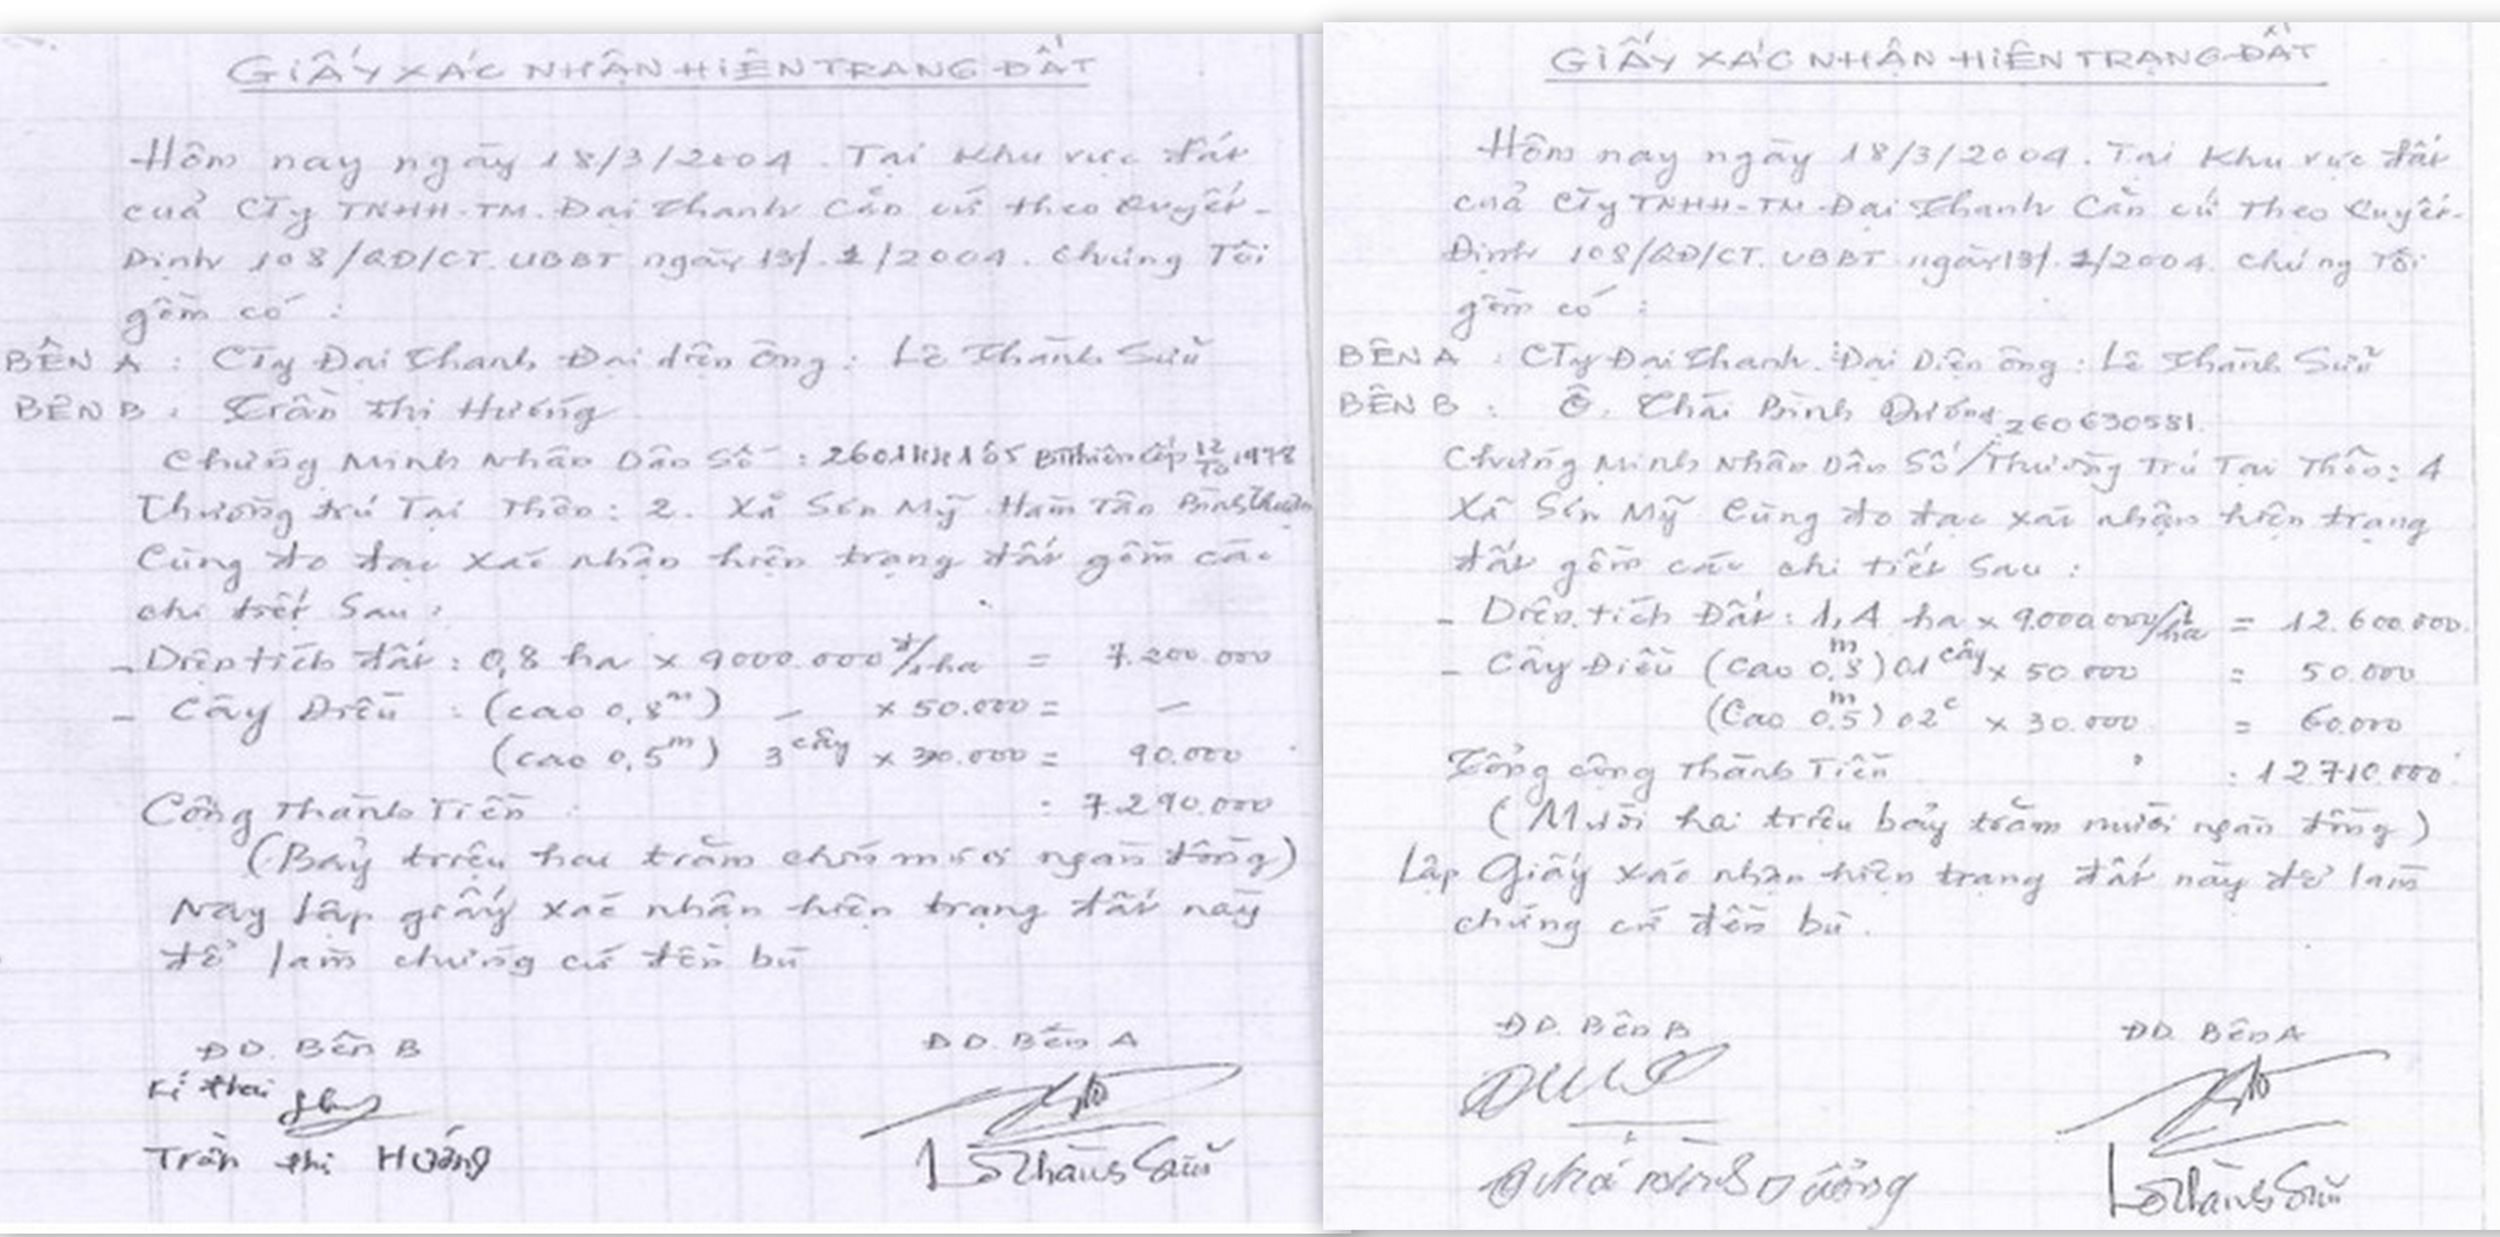 GIẤY XÁC NHẬN HIÊN TRANG ĐẤT
Hôm nay ngày 18/3/2004. Tại khu vực đất
cuả CTy TNHH-TM. Đại Thanh Căn cứ theo Quyết-
Định 108/QĐ/CT.UBBT ngày 13/.1/2004. Chúng Tôi
gồm có :
BÊN A : CTy Đại Thanh Đại diện Ông : Lê Thành Sửu
BÊN B : Trần Thị Hướng
Chứng Minh Nhân Dân Số : cấp 12/10 1978
Thường trú Tại Thôn : 2. Xã Sơn Mỹ Hàm Tân Bình Thuận
Cùng đo đạc xác nhận hiện trạng đất gồm các
chi tiết Sau :
- Diện tích đất : 0,8 ha x 9000.000đ/ha = 7.200.000
- Cây Điều : (cao 0,8m) - x 50.000 = -
(cao 0,5m) 3 cây x 30.000 = 90.000
Cộng Thành Tiền : 7.290.000
(Bảy triệu hai trăm chín mươi ngàn đồng)
Nay lập giấy xác nhận hiện trạng đất này
để làm chứng cứ đền bù
ĐD. Bên B ĐD. Bên A
Kí thai
Trần thị Hướng Lê Thành Sửu
GIẤY XÁC NHẬN HIÊN TRẠNG ĐẤT
Hôm nay ngày 18/3/2004. Tại khu vực đất
cuả CTy TNHH-TM-Đại Thanh Căn cứ Theo Quyết-
Định 108/QĐ/CT.UBBT ngày 13/.1/2004. Chúng Tôi
gồm có :
BÊN A : CTy Đại Thanh. Đại Diện ông : Lê Thành Sửu
BÊN B : Ô. Thái Bình Dương 260630581.
Chứng Minh Nhân Dân Số / Thường Trú Tại Thôn : 4
Xã Sơn Mỹ Cùng đo đạc xác nhận hiện trạng
đất gồm các chi tiết Sau :
- Diện tích Đất : 1,4 ha x 9.000.000/đ/ha = 12.600.000.
- Cây Điều (Cao 0,8m) 01 cây x 50.000 = 50.000
(Cao 0.5m) 02c x 30.000 = 60.000
Tổng cộng Thành Tiền : 12.710.000
(Mười hai triệu bảy trăm mười ngàn đồng)
Lập Giấy xác nhận hiện trạng đất này để làm
chứng cứ đền bù.
ĐD. Bên B ĐD. Bên A
Thái Bình Dương Lê Thành Sửu